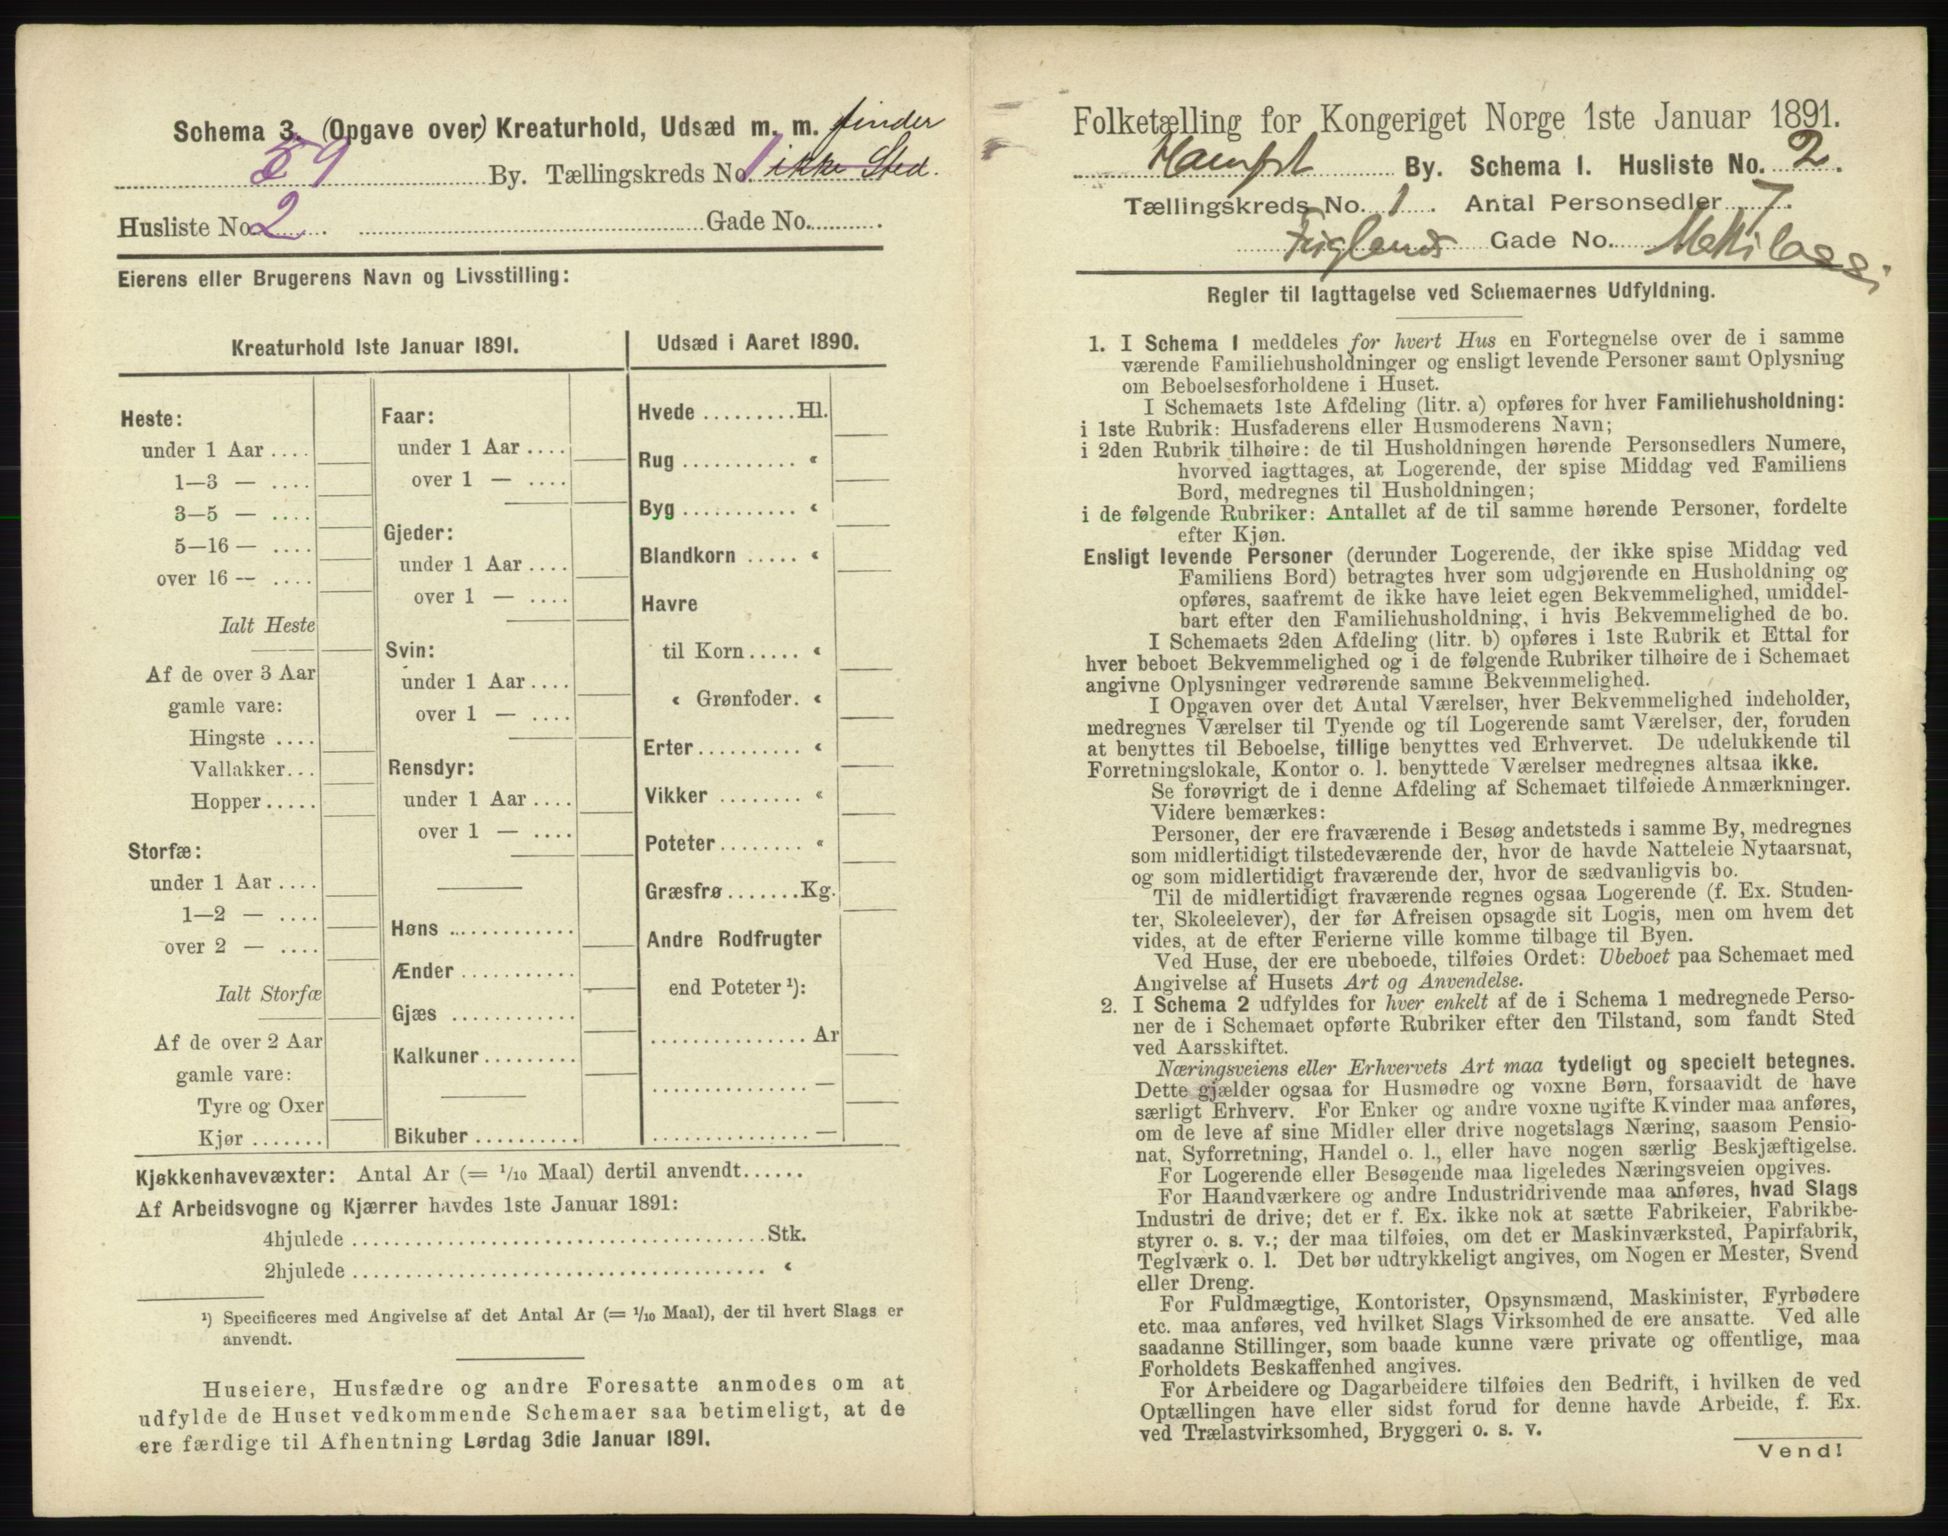 Schema 3. (Opgave over) Kreaturhold, Udsæd m. m. finder
59 By. Tællingskreds No. 1 ikke Sted.
Husliste No. 2 . Gade No.
Eierens eller Brugerens Navn og Livsstilling:
Kreaturhold 1ste Januar 1891.
Heste:
under 1 Aar ....
1—3 — ....
3—5 — ....
5—16 — ....
over 16 — ....
Ialt Heste
Af de over 3 Aar
gamle vare:
Hingste ....
Vallakker...
Hopper.....
Storfæ:
under 1 Aar ....
1—2 — ....
over 2 — ....
Ialt Storfæ
Af de over 2 Aar
gamle vare:
Tyre og Oxer
Kjør .......
Faar:
under 1 Aar ....
over 1 — ....
Gjeder:
under 1 Aar ....
over 1 — ....
Svin:
under 1 Aar ....
over 1 — ....
Rensdyr:
under 1 Aar ....
over 1 — ....
Høns ............
Ænder ...........
Gjæs ............
Kalkuner.........
Bikuber ..........
Udsæd i Aaret 1890.
Hvede .........Hl.
Rug ........... «
Byg ........... «
Blandkorn ..... «
Havre
til Korn..... «
« Grønfoder. «
Erter.......... «
Vikker ........ «
Poteter........ «
Græsfrø .......Kg.
Andre Rodfrugter
end Poteter ¹):
............... Ar
............... —
............... —
Kjøkkenhavevæxter: Antal Ar (= 1/10 Maal) dertil anvendt......
Af Arbeidsvogne og Kjærrer havdes 1ste Januar 1891:
4hjulede ........................................Stk.
2hjulede ........................................ «
¹) Specificeres med Angivelse af det Antal Ar (= 1/10 Maal), der til hvert Slags er
anvendt.
Huseiere, Husfædre og andre Foresatte anmodes om at
udfylde de Huset vedkommende Schemaer saa betimeligt, at de
ere færdige til Afhentning Lørdag 3die Januar 1891.
Folketælling for Kongeriget Norge 1ste Januar 1891.
By. Schema I. Husliste No. 2.
Tællingskreds No. 1. Antal Personsedler 7.
Gade No.
Regler til Iagttagelse ved Schemaernes Udfyldning.
1. I Schema 1 meddeles for hvert Hus en Fortegnelse over de i samme
værende Familiehusholdninger og ensligt levende Personer samt Oplysning
om Beboelsesforholdene i Huset.
I Schemaets 1ste Afdeling (litr. a) opføres for hver Familiehusholdning:
i 1ste Rubrik: Husfaderens eller Husmoderens Navn;
i 2den Rubrik tilhøire: de til Husholdningen hørende Personsedlers Numere,
hvorved iagttages, at Logerende, der spise Middag ved Familiens
Bord, medregnes til Husholdningen;
i de følgende Rubriker: Antallet af de til samme hørende Personer, fordelte
efter Kjøn.
Ensligt levende Personer (derunder Logerende, der ikke spise Middag ved
Familiens Bord) betragtes hver som udgjørende en Husholdning og
opføres, saafremt de ikke have leiet egen Bekvemmelighed, umiddel-
bart efter den Familiehusholdning, i hvis Bekvemmelighed de bo.
I Schemaets 2den Afdeling (litr. b) opføres i 1ste Rubrik et Ettal for
hver beboet Bekvemmelighed og i de følgende Rubriker tilhøire de i Schemaet
angivne Oplysninger vedrørende samme Bekvemmelighed.
I Opgaven over det Antal Værelser, hver Bekvemmelighed indeholder,
medregnes Værelser til Tyende og til Logerende samt Værelser, der, foruden
at benyttes til Beboelse, tillige benyttes ved Erhvervet. De udelukkende til
Forretningslokale, Kontor o. l. benyttede Værelser medregnes altsaa ikke.
Se forøvrigt de i denne Afdeling af Schemaet tilføiede Anmærkninger.
Videre bemærkes:
Personer, der ere fraværende i Besøg andetsteds i samme By, medregnes
som midlertidigt tilstedeværende der, hvor de havde Natteleie Nytaarsnat,
og som midlertidigt fraværende der, hvor de sædvanligvis bo.
Til de midlertidigt fraværende regnes ogsaa Logerende (f. Ex. Studen-
ter, Skoleelever), der før Afreisen opsagde sit Logis, men om hvem det
vides, at de efter Ferierne ville komme tilbage til Byen.
Ved Huse, der ere ubeboede, tilføies Ordet: Ubeboet paa Schemaet med
Angivelse af Husets Art og Anvendelse.
2. I Schema 2 udfyldes for hver enkelt af de i Schema 1 medregnede Perso-
ner de i Schemaet opførte Rubriker efter den Tilstand, som fandt Sted
ved Aarsskiftet.
Næringsveiens eller Erhvervets Art maa tydeligt og specielt betegnes.
Dette gjælder ogsaa for Husmødre og voxne Børn, forsaavidt de have
særligt Erhverv. For Enker og andre voxne ugifte Kvinder maa anføres,
om de leve af sine Midler eller drive nogetslags Næring, saasom Pensio-
nat, Syforretning, Handel o. l., eller have nogen særlig Beskjæftigelse.
For Logerende eller Besøgende maa ligeledes Næringsveien opgives.
For Haandværkere og andre Industridrivende maa anføres, hvad Slags
Industri de drive; det er f. Ex. ikke nok at sætte Fabrikeier, Fabrikbe-
styrer o. s. v.; der maa tilføies, om det er Maskinværksted, Papirfabrik,
Teglværk o. l. Det bør udtrykkeligt angives, om Nogen er Mester, Svend
eller Dreng.
For Fuldmægtige, Kontorister, Opsynsmænd, Maskinister, Fyrbødere
etc. maa anføres, ved hvilket Slags Virksomhed de ere ansatte. Ved alle
saadanne Stillinger, som baade kunne være private og offentlige, maa
Forholdets Beskaffenhed angives.
For Arbeidere og Dagarbeidere tilføies den Bedrift, i hvilken de ved
Optællingen have eller sidst forud for denne havde Arbeide, f. Ex.
ved Trælastvirksomhed, Bryggeri o. s. v.
Vend!